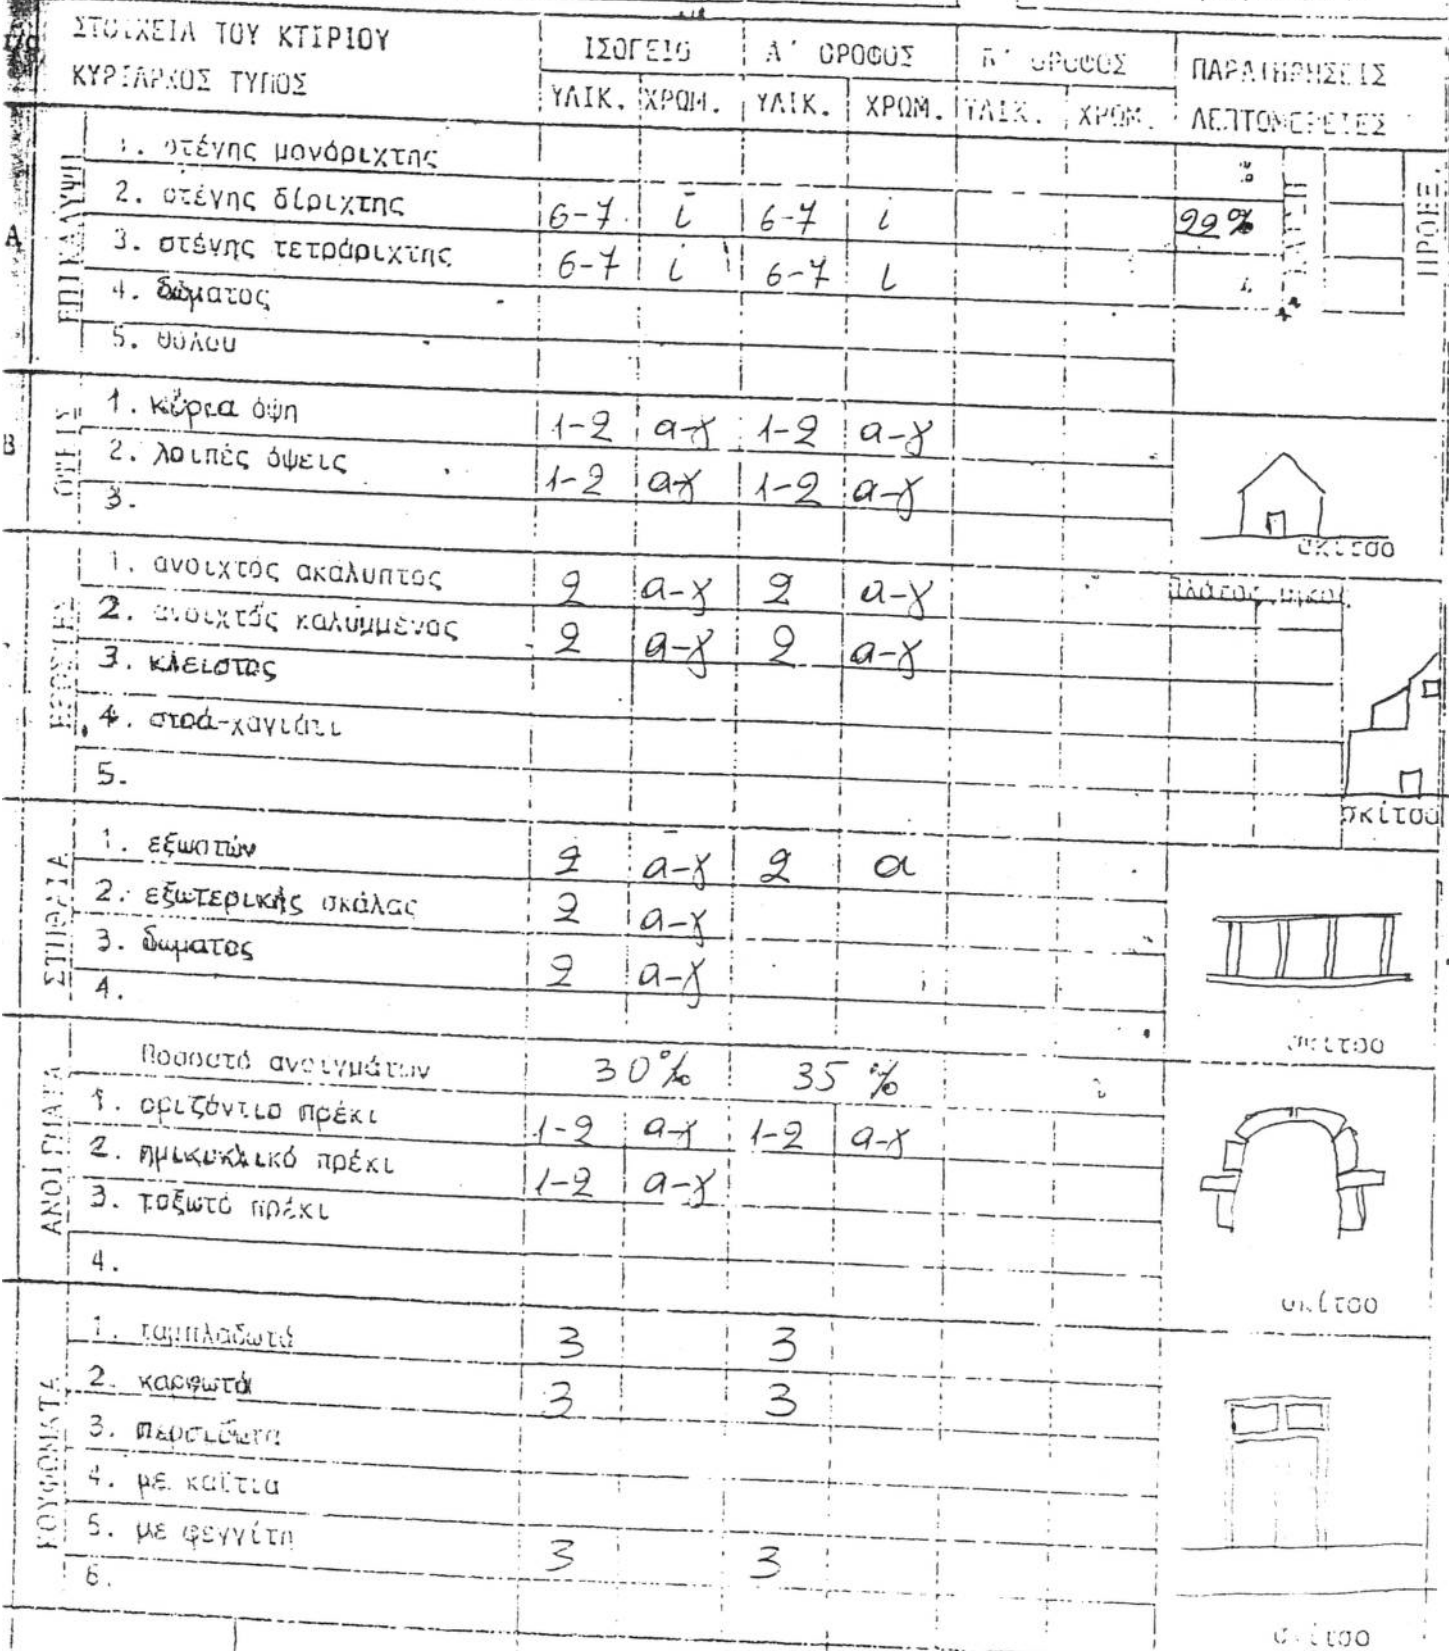 ΣΤΟΙΧΕΙΑ ΤΟΥ ΚΤΙΡΙΟΥ
ΚΥΡΙΑΡΧΟΣ ΤΥΠΟΣ
ΙΣΟΓΕΙΟ Α' ΟΡΟΦΟΣ Β' ΟΡΟΦΟΣ ΠΑΡΑΤΗΡΗΣΕΙΣ
ΥΛΙΚ. ΧΡΩΜ. ΥΛΙΚ. ΧΡΩΜ. ΥΛΙΚ. ΧΡΩΜ. ΛΕΠΤΟΜΕΡΕΙΕΣ
Α ΕΠΙΚΑΛΥΨΗ
1. στέγης μονόριχτης
2. στέγης δίριχτης 6-7 i 6-7 i 22%
3. στέγης τετράριχτης 6-7 i 6-7 i
4. δώματος
5. θόλου
ΠΡΟΕΞ.
Β ΟΨΕΙΣ
1. κύρια όψη 1-2 α-γ 1-2 α-γ
2. λοιπές όψεις 1-2 α-γ 1-2 α-γ
3.
σκίτσο
ΕΞΩΣΤΕΣ
1. ανοιχτός ακάλυπτος 2 α-γ 2 α-γ
2. ανοιχτός καλυμμένος 2 α-γ 2 α-γ
3. κλειστός
4. στοά-χαγιάτι
5.
πλάτος μήκος
σκίτσο
ΣΤΗΘΑΙΑ
1. εξωστών 2 α-γ 2 α
2. εξωτερικής σκάλας 2 α-γ
3. δώματος 2 α-γ
4.
σκίτσο
ΑΝΟΙΓΜΑΤΑ
Ποσοστό ανοιγμάτων 30% 35%
1. οριζόντιο πρέκι 1-2 α-γ 1-2 α-γ
2. ημικυκλικό πρέκι 1-2 α-γ
3. τοξωτό πρέκι
4.
σκίτσο
ΚΟΥΦΩΜΑΤΑ
1. ταμπλαδωτά 3 3
2. καρφωτά 3 3
3. περσιδωτά
4. με καΐτια
5. με φεγγίτη 3 3
6.
σκίτσο